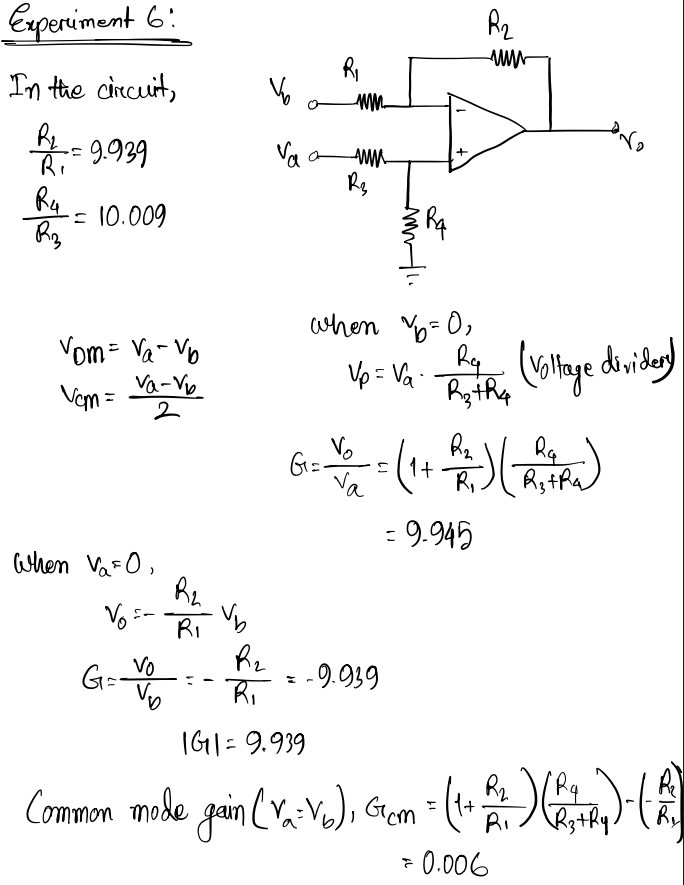 Experiment 6:
In the circuit,
R2/R1 = 9.939
R4/R3 = 10.009
R2
R1
Vb
-
Va
+
Vo
R3
R4
VDM = Va - Vb
Vcm = (Va - Vb)/2
when Vb = 0,
Vp = Va · R4/(R3+R4) (Voltage divider)
G = Vo/Va = (1 + R2/R1)(R4/(R3+R4))
= 9.945
when Va = 0,
Vo = - R2/R1 Vb
G = Vo/Vb = - R2/R1 = -9.939
|G| = 9.939
Common mode gain (Va = Vb), Gcm = (1 + R2/R1)(R4/(R3+R4)) - (- R2/R1)
= 0.006